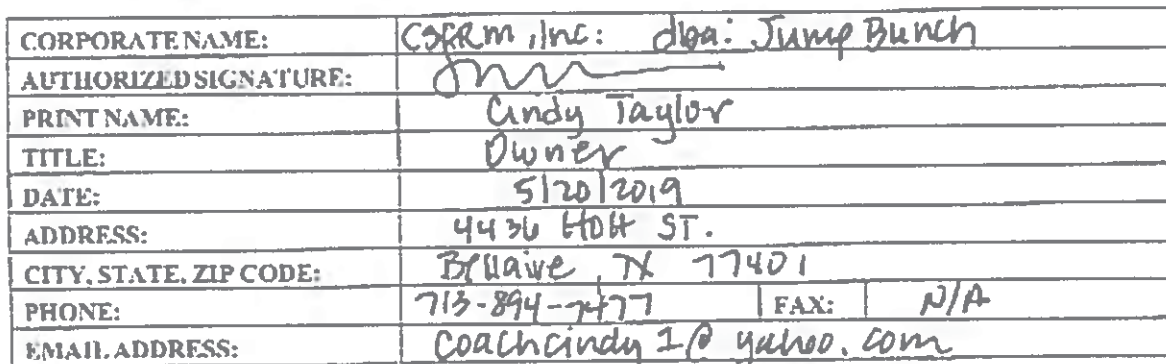 CORPORATE NAME: Inc: dba: Jump Bunch
AUTHORIZED SIGNATURE:
PRINT NAME: Cindy Taylor
TITLE: Owner
DATE: 5/20/2019
ADDRESS: 4436 ST.
CITY, STATE, ZIP CODE: Bellaire, TX 77401
PHONE: 713-894-7477 FAX: N/A
EMAIL ADDRESS: coachcindy1@yahoo.com